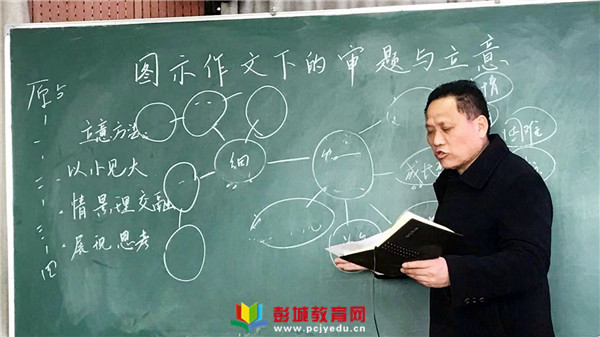 图示作文下的审题与立意
立意方法：
以小见大
情景理交融
展现思考
细
情
困难
成长
彭城教育网
www.pcjyedu.cn